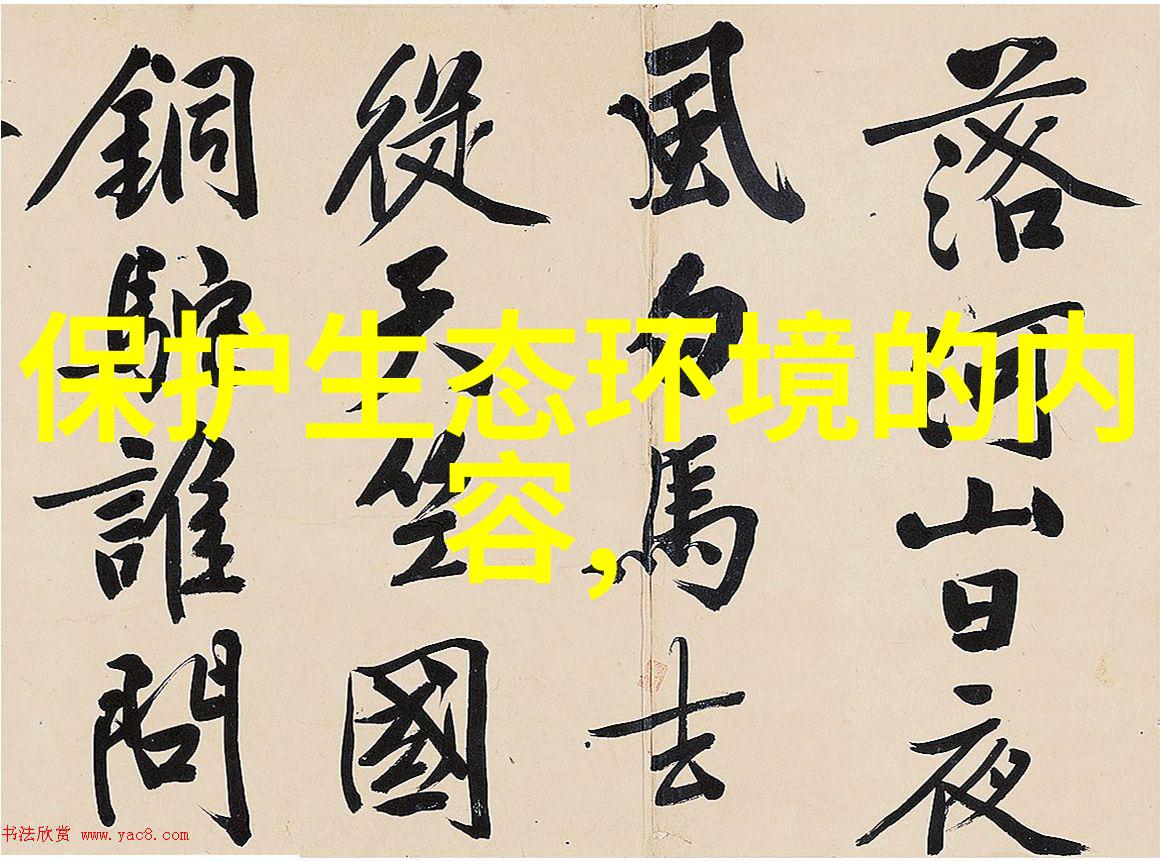 保护生态环境的内
容,
落河山日夜
風白馬去
從天竺國
銅駝誰問
书法欣赏 www.yac8.com